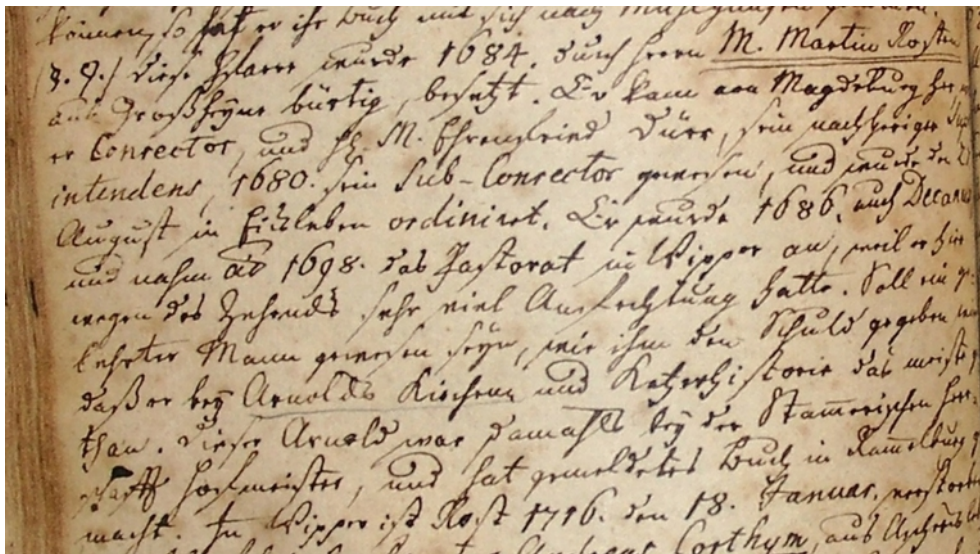 können, so hat er ihr Buch mit sich nach
diese Pfarre wurde 1684. durch Herrn M. Martin Rosten
aus Großheyne bürtig, besetzt. Er kam von Magdeburg her,
er Conrector, und H. M. Ehrenfried Dürr, sein nachheriger
intendens, 1680. sein Sub-Conrector gewesen, und wurde den
August in Eisleben ordiniret. Er wurde 1686. auch Decanus
und nahm ao 1698. das Pastorat in Wipper an, weil er hier
wegen des Zehends sehr viel Anfechtung hatte. Soll ein ge-
lehrter Mann gewesen seyn, wie ihm den Schuld gegeben
daß er bey Arnolds Kirchen und Ketzerhistorie das meiste
than. Dieser Arnold war damahls bey der Stamerischen Herr-
schafft Hofmeister, und hat gemeldetes Buch in Rammelburg
macht. In Wipper ist Rost 1716. den 18. Januar. verstorben
Andreas Corthym, aus